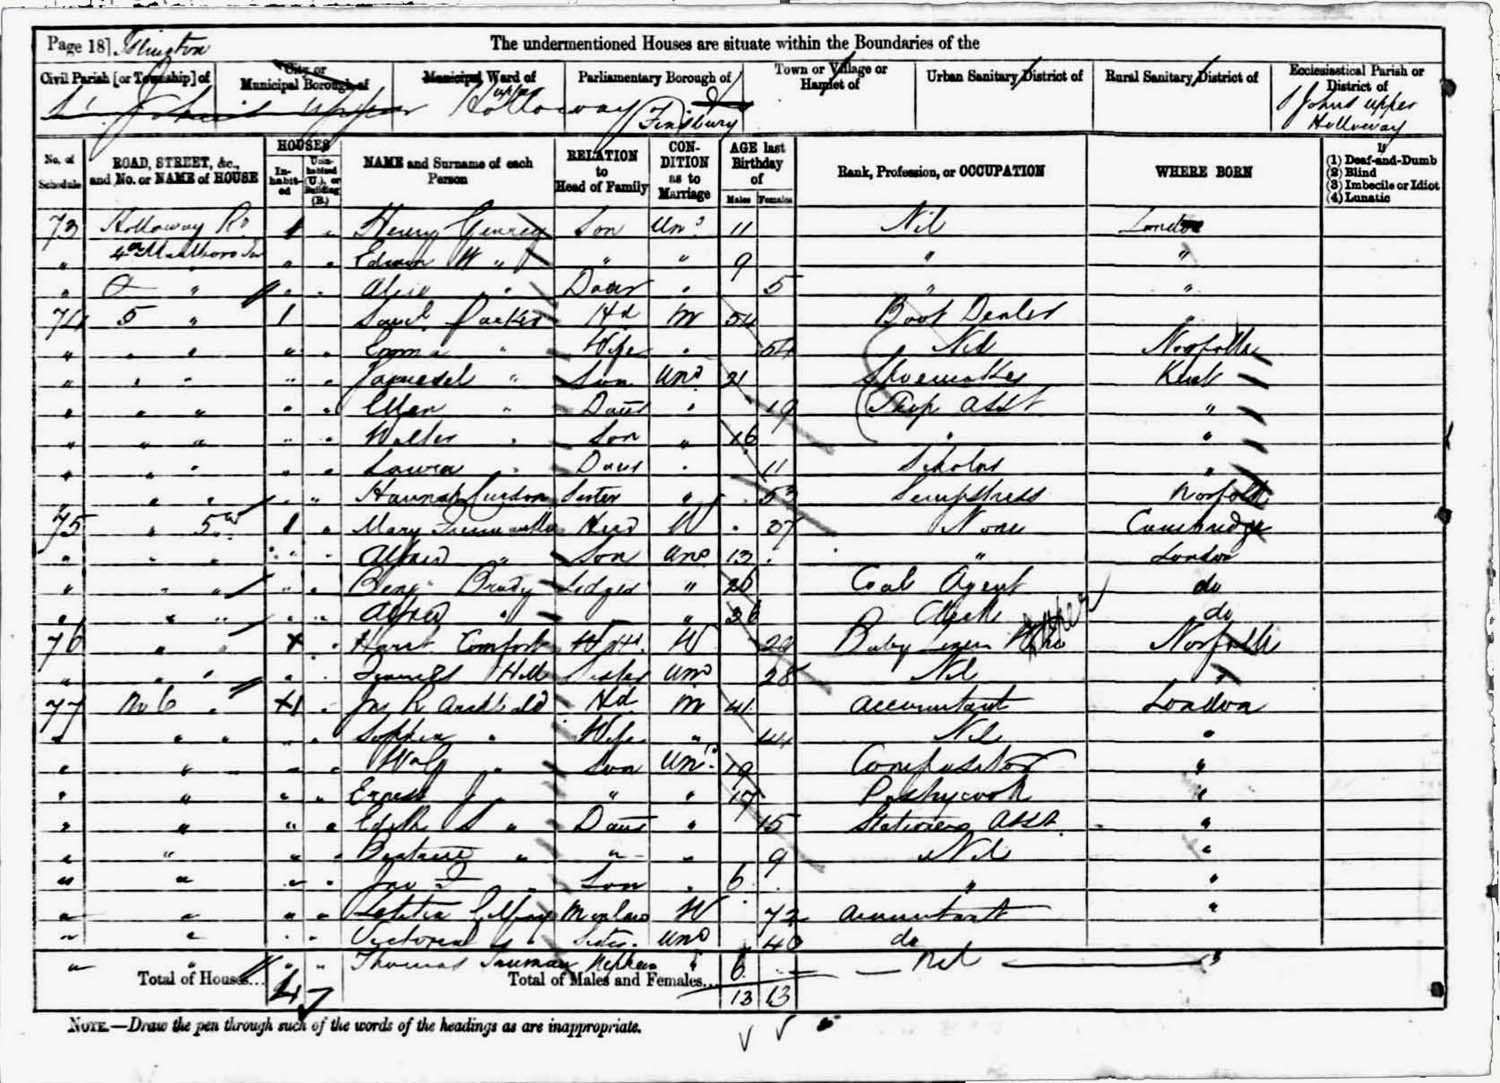 Page 18] Islington
The undermentioned Houses are situate within the Boundaries of the
Civil Parish [or Township] of City or Municipal Borough of Municipal Ward of Parliamentary Borough of Town or Village or Hamlet of Urban Sanitary District of Rural Sanitary District of Ecclesiastical Parish or District of
Upper Holloway Finsbury St Johns upper Holloway
No. of Schedule ROAD, STREET, &c., and No. or NAME of HOUSE HOUSES Inhabited Uninhabited (U.), or Building (B.) NAME and Surname of each Person RELATION to Head of Family CONDITION as to Marriage AGE last Birthday of Males Females Rank, Profession, or OCCUPATION WHERE BORN If (1) Deaf-and-Dumb (2) Blind (3) Imbecile or Idiot (4) Lunatic
73 Holloway Rd 1 " Henry Son Unm 11 Nil London
" " " Edwin W " " " 9 " "
" " " " " Daur " 5 " "
74 5 " 1 Saml Parker Hd M 54 Boot Dealer "
" " " " " Emma " Wife " 54 Nil Norfolk
" " " " " " Son Unm 21 Shoemaker Kent
" " " " " Ellen " Daur " 19 Shop Asst "
" " " " " Walter " Son " 16 " "
" " " " " Laura " Daur " 11 Scholar "
" " " " " Hannah Sister " 53 Sempstress Norfolk
75 " 5a 1 " Mary Head W 37 None Cambridge
" " " " " Alfred " Son Unm 13 " London
" " " " " Benj Brady Lodger " 26 Coal Agent do
" " " " " Alfred " " " 26 Clerk do
76 " " Comfort W 29 Baby Linen Norfolk
" " " " " Hill Sister Unm 28 Nil "
77 No 6 " 1 " Jas R Hd M 41 Accountant London
" " " " " Sophia " Wife " 44 Nil "
" " " " " Son Unm 19 Compositor "
" " " " Ernest J " " " 17 Pastrycook "
" " " " Edith S " Daur " 15 Stationers Asst "
" " " " Beatrice " " " 9 Nil "
" " " " Jas " Son " 6 " "
" " " " Letitia W 72 "
" " " " Victoria " Sister Unm 40 do
" " " " Thomas Nephew " 6 Nil "
Total of Houses... 4 Total of Males and Females... 13 13
NOTE.—Draw the pen through such of the words of the headings as are inappropriate.